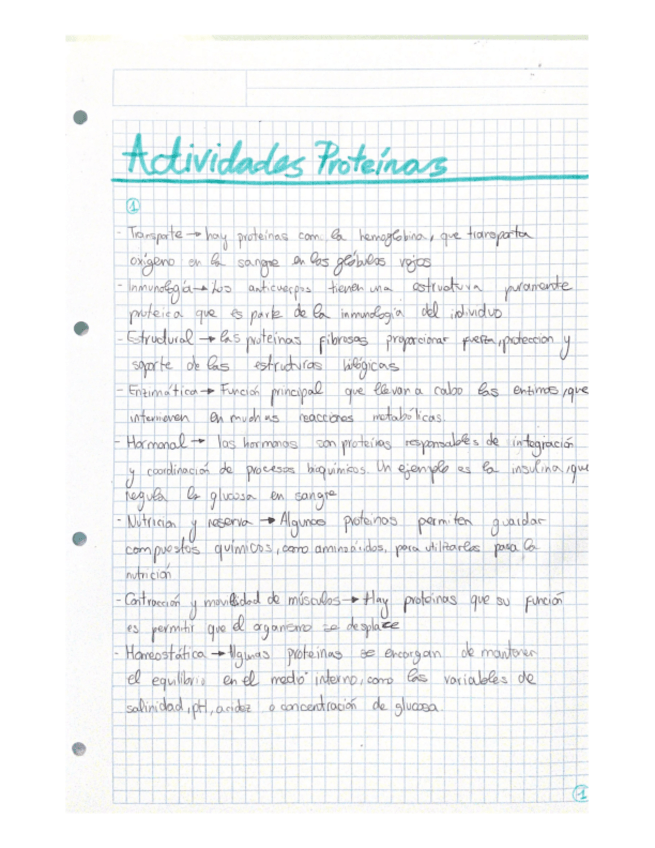 Actividades Proteínas
1
- Transporte → hay proteínas com la hemoglobina, que transporta
oxígeno en la sangre en los glóbulos rojos
- Inmunología → Los anticuerpos tienen una estructura puramente
proteica que es parte de la inmunología del individuo
- Estructural → Las proteínas fibrosas proporcionar fuerza, protección y
soporte de las estructuras biológicas
- Enzimática → Función principal que llevan a cabo las enzimas, que
intervienen en muchas reacciones metabólicas.
- Hormonal → las hormonas son proteínas responsables de integración
y coordinación de procesos bioquímicos. Un ejemplo es la insulina, que
regula la glucosa en sangre
- Nutricion y reserva → Algunos proteínas permiten guardar
compuestos químicos, como aminoácidos, para utilizarlos para la
nutrición
- Contracción y movilidad de músculos → Hay proteínas que su función
es permitir que el organismo se desplace
- Homeostática → Algunas proteínas se encargan de mantener
el equilibrio en el medio interno, como las variables de
salinidad, pH, acidez o concentración de glucosa.
1